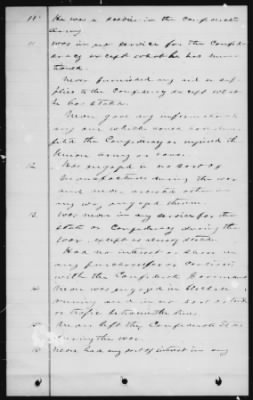 10 He was a soldier in the Confederate
Army
11 was in no service for the Confed-
eracy except what he has men-
tioned.
Never furnished any aid or sup-
plies to the Confederacy except what
he has stated.
Never gave any information to
any one which could
the Confederacy or injured the
Union army or cause.
12 Was engaged in no sort of
manufacture during the war
and never
any way engaged therein.
13 Was never in any service for the
state or Confederacy during the
war, except as already stated.
Had no interest or share in
any
with the Confederate Government
14 Never was engaged in blockade
running and in no sort of trade
or traffic between the lines.
15 Never left the Confederate States
during the war.
16 Never had any sort of interest in any